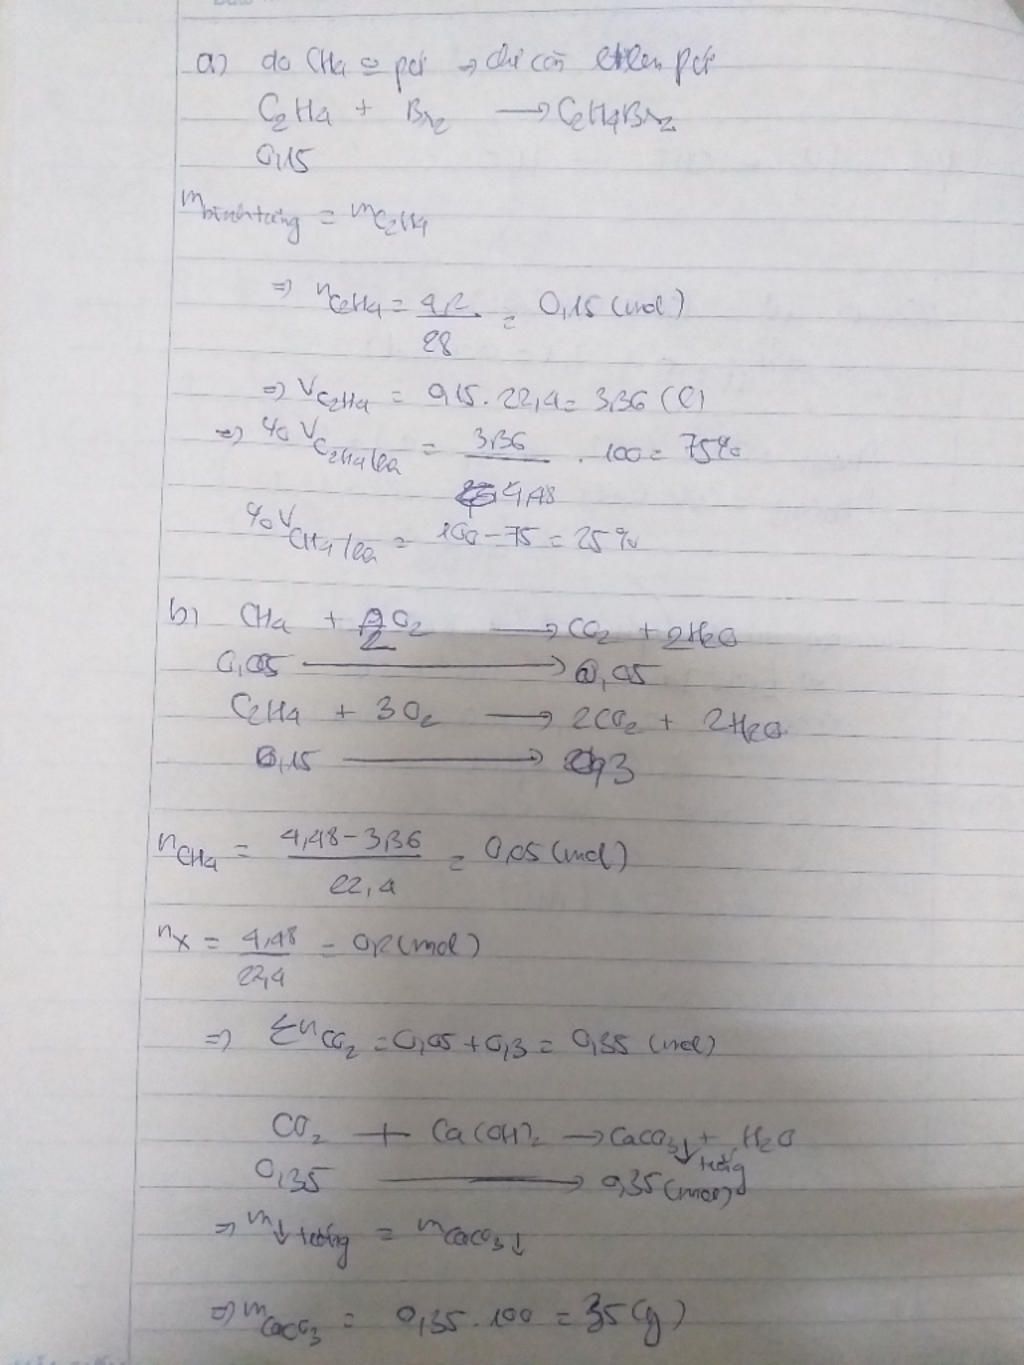 a) do CH4 o pứ → chỉ còn etilen pứ
C2H4 + Br2 → C2H4Br2
0,15
m bình tăng = mC2H4
=> nC2H4 = 4,2/28 = 0,15 (mol)
=> VC2H4 = 0,15 . 22,4 = 3,36 (l)
=> %VC2H4/ = 3,36/4,48 . 100 = 75%
%VCH4/ = 100 - 75 = 25%
b) CH4 + 2O2 → CO2 + 2H2O
0,05 → 0,05
C2H4 + 3O2 → 2CO2 + 2H2O
0,15 → 0,3
nCH4 = 4,48 - 3,36/22,4 = 0,05 (mol)
nX = 4,48/22,4 = 0,2 (mol)
=> ΣnCO2 = 0,05 + 0,3 = 0,35 (mol)
CO2 + Ca(OH)2 → CaCO3↓ trắng + H2O
0,35 → 0,35 (mol)
=> m↓ trắng = mCaCO3↓
=> mCaCO3 = 0,35 . 100 = 35 (g)